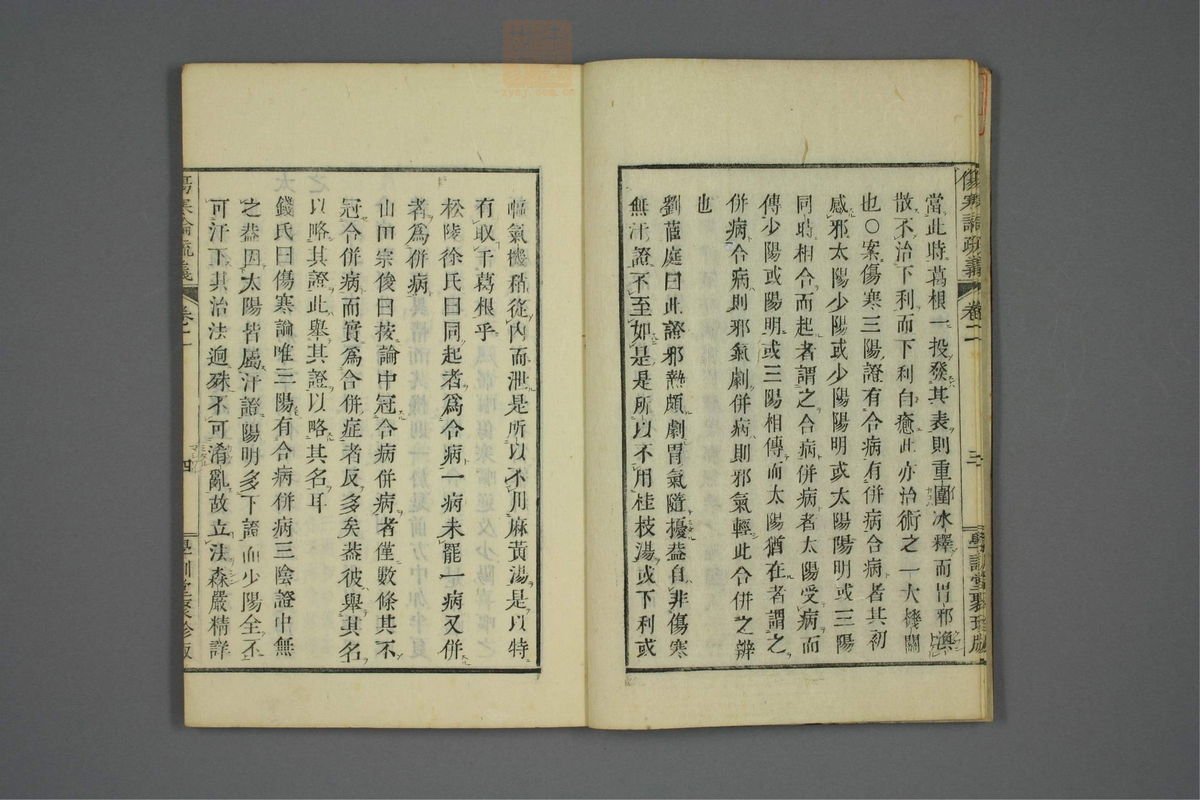 傷寒論疏義
卷二
三
學訓堂聚珍版
當此時葛根一投發其表則重圍冰釋而胃邪渙
散不治下利而下利自癒此亦治術之一大機關
也○案傷寒三陽證有合病有併病合病者其初
感邪太陽少陽或少陽陽明或太陽陽明或三陽
同時相合而起者謂之合病併病者太陽受病而
傳少陽或陽明或三陽相傳而太陽猶在者謂之
併病合病則邪氣劇併病則邪氣輕此合併之辨
也
劉蓶庭曰此證邪熱頗劇胃氣隨擾蓋自非傷寒
無汗證不至如是是所以不用桂枝湯或下利或
嘔氣機稽從內而泄是所以不用麻黃湯是以特
有取于葛根乎
松陵徐氏曰同起者爲合病一病未罷一病又併
者爲併病
山田宗俊曰按論中冠合病併病者僅數條其不
冠合併病而實爲合併症者反多矣蓋彼舉其名
以略其證此舉其證以略其名耳
錢氏曰傷寒論唯三陽有合病併病三陰證中無
之蓋因太陽皆屬汗證陽明多下證而少陽全不
可汗下其治法迥殊不可淆亂故立法森嚴精詳
傷寒論疏義
卷二
四
學訓堂聚珍版